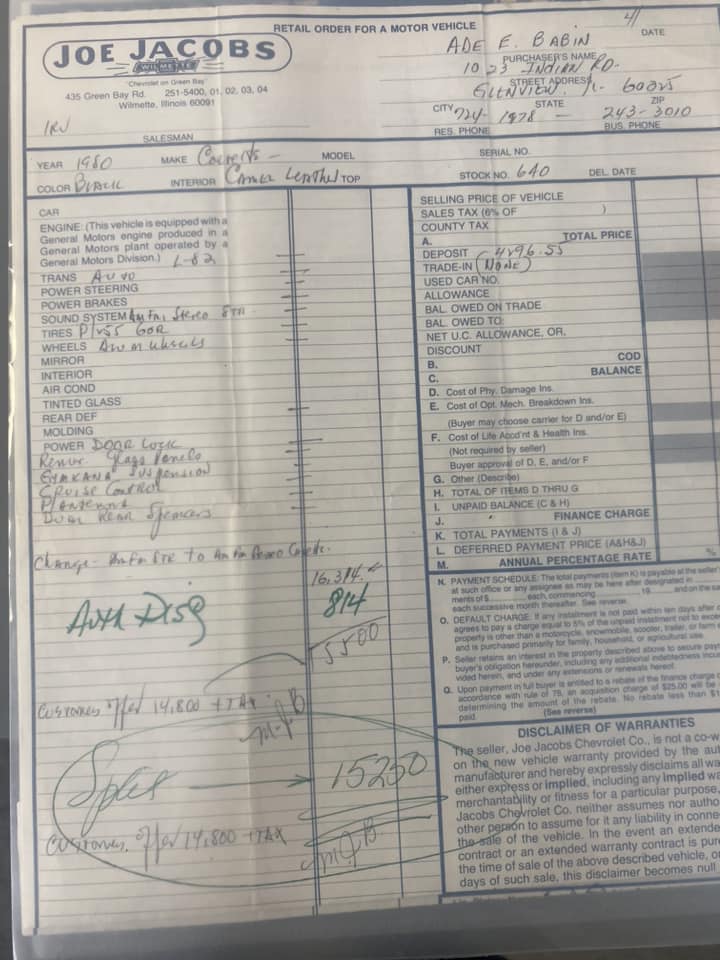 RETAIL ORDER FOR A MOTOR VEHICLE
JOE JACOBS
WILMETTE
"Chevrolet on Green Bay"
435 Green Bay Rd. 251-5400, 01, 02, 03, 04
Wilmette, Illinois 60091
4/
DATE
ADE E. BABIN
PURCHASER'S NAME
1023 INDIAN RD.
STREET ADDRESS
GLENVIEW, IL 60025
CITY STATE ZIP
724-1978 — 243-3010
RES. PHONE BUS. PHONE
IRV
SALESMAN
YEAR 1980 MAKE Corvette - MODEL SERIAL NO.
COLOR BLACK INTERIOR Camel Leather TOP STOCK NO. 640 DEL. DATE
CAR
ENGINE: (This vehicle is equipped with a
General Motors engine produced in a
General Motors plant operated by a
General Motors Division.) L-82
TRANS AUTO
POWER STEERING
POWER BRAKES
SOUND SYSTEM Am Fm Stereo 8TR
TIRES P/255 60R
WHEELS Alum Wheels
MIRROR
INTERIOR
AIR COND
TINTED GLASS
REAR DEF
MOLDING
POWER DOOR LOCK
Glass Panels
SUSPENSION
CRUISE CONTROL
Dual Rear Speakers
Change - Am Fm 8TR to Am Fm
16,314
Auth Disg 814
15500
CUSTOMER offer 14,800 + TAX
M.J.B
Split → 15250
CUSTOMER offer 14,800 + TAX
M.J.B.
SELLING PRICE OF VEHICLE
SALES TAX (6% OF )
COUNTY TAX
A. TOTAL PRICE
DEPOSIT 4896.55
TRADE-IN (NONE)
USED CAR NO.
ALLOWANCE
BAL. OWED ON TRADE
BAL. OWED TO:
NET U.C. ALLOWANCE, OR.
DISCOUNT
B. COD
C. BALANCE
D. Cost of Phy. Damage Ins.
E. Cost of Opt. Mech. Breakdown Ins.
(Buyer may choose carrier for D and/or E)
F. Cost of Life Accd'nt & Health Ins.
(Not required by seller)
Buyer approval of D, E, and/or F
G. Other (Describe)
H. TOTAL OF ITEMS D THRU G
I. UNPAID BALANCE (C & H)
J. FINANCE CHARGE
K. TOTAL PAYMENTS (I & J)
L. DEFERRED PAYMENT PRICE (A&H&J)
M. ANNUAL PERCENTAGE RATE %
N. PAYMENT SCHEDULE: The total payments (item K) is payable at the seller
at such office or any assignee as may be here after designated in
ments of $ each, commencing 19 and on the
each successive month thereafter. See reverse.
O. DEFAULT CHARGE: If any installment is not paid within ten days after
agrees to pay a charge equal to 5% of the unpaid installment not to
property is other than a motorcycle, snowmobile, scooter, trailer, or farm
and is purchased primarily for family, household, or agricultural use.
P. Seller retains an interest in the property described above to secure
buyer's obligation hereunder, including any additional indebtedness
vided herein, and under any extensions or renewals hereof.
Q. Upon payment in full buyer is entitled to a rebate of the finance charge
accordance with rule of 78, an acquisition charge of $25.00 will be
determining the amount of the rebate. No rebate less than $1
paid. (See reverse)
DISCLAIMER OF WARRANTIES
The seller, Joe Jacobs Chevrolet Co., is not a co-w
on the new vehicle warranty provided by the
manufacturer and hereby expressly disclaims all wa
either express or implied, including any implied
merchantability or fitness for a particular purpose,
Jacobs Chevrolet Co. neither assumes nor autho
other person to assume for it any liability in conne
the sale of the vehicle. In the event an extended
contract or an extended warranty contract is pur
the time of sale of the above described vehicle, or
days of such sale, this disclaimer becomes null